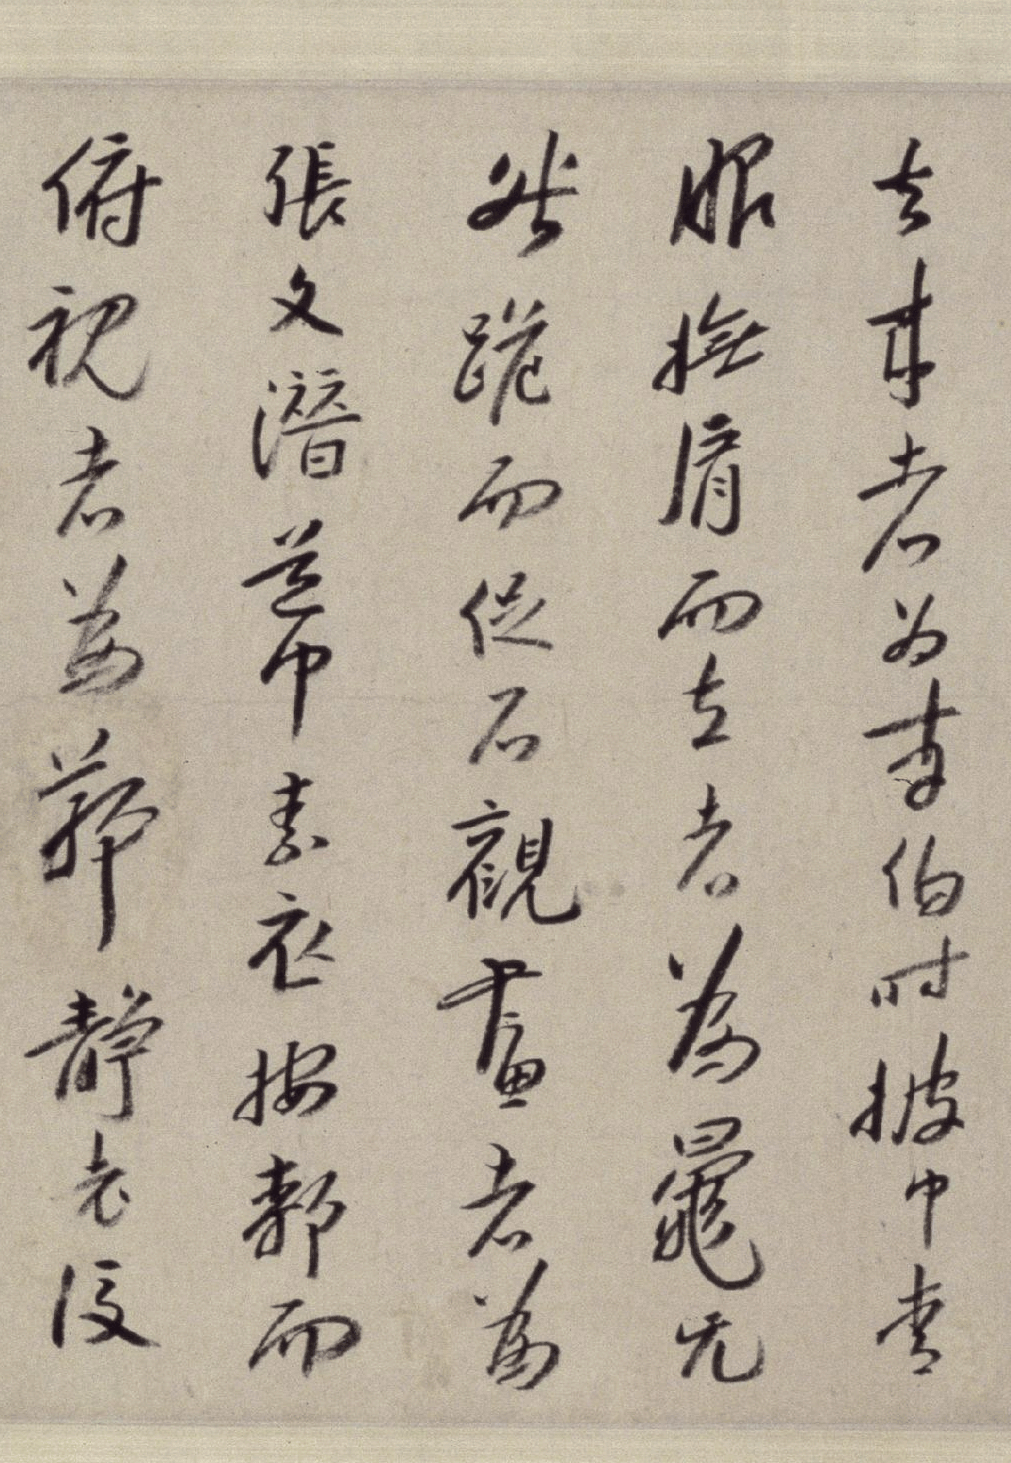 去来者为李伯时披巾青
服抚肩而立者為晁无
咎跪而促石觀畫者為
張文潛道巾素衣按郄而
俯視者為鄭靖老後